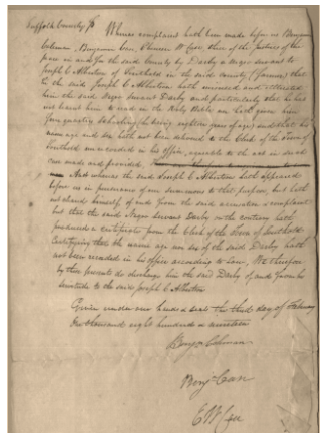 Suffolk County Ss Whereas complaint hath been made before us Benjamin
Coleman Benjamin Case, Ebenezer W Case, three of the Justices of the
peace in and for the said County by Darby a Negro servant to
Joseph C Albertson of Southold in the said County (farmer) that
he the said Joseph C Albertson hath misused and illtreated
him the said Negro Servant Darby and particularly that he has
not learnt him to read in the Holy Bible nor hath given him
four quarters Schooling (he being eighteen years of age) and that his
name age and sex hath not been delivered to the Clerk of the Town of
Southold and recorded in his office, agreeable to the act in such
case made and provided
And whereas the said Joseph C Albertson hath appeared
before us in pursuance of our summons to that purpose, but hath
not cleared himself of and from the said accusation & complaint
but that the said Negro Servant Darby on the contrary hath
produced a certificate from the Clerk of the Town of Southold
Certifying that the name age nor sex of the said Darby hath
not been recorded in his office according to Law, We therefore
by these presents do discharge him the said Darby of and from his
servitude to the said Joseph C Albertson
Given under our hands & seals the third day of February
One thousand eight hundred & nineteen
Benjn Coleman
Benjn Case
E W Case